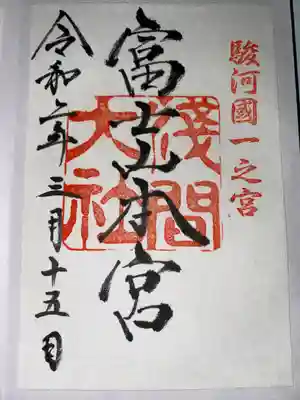 駿河國一之宮
富士山本宮
淺間大社
令和六年三月十五日